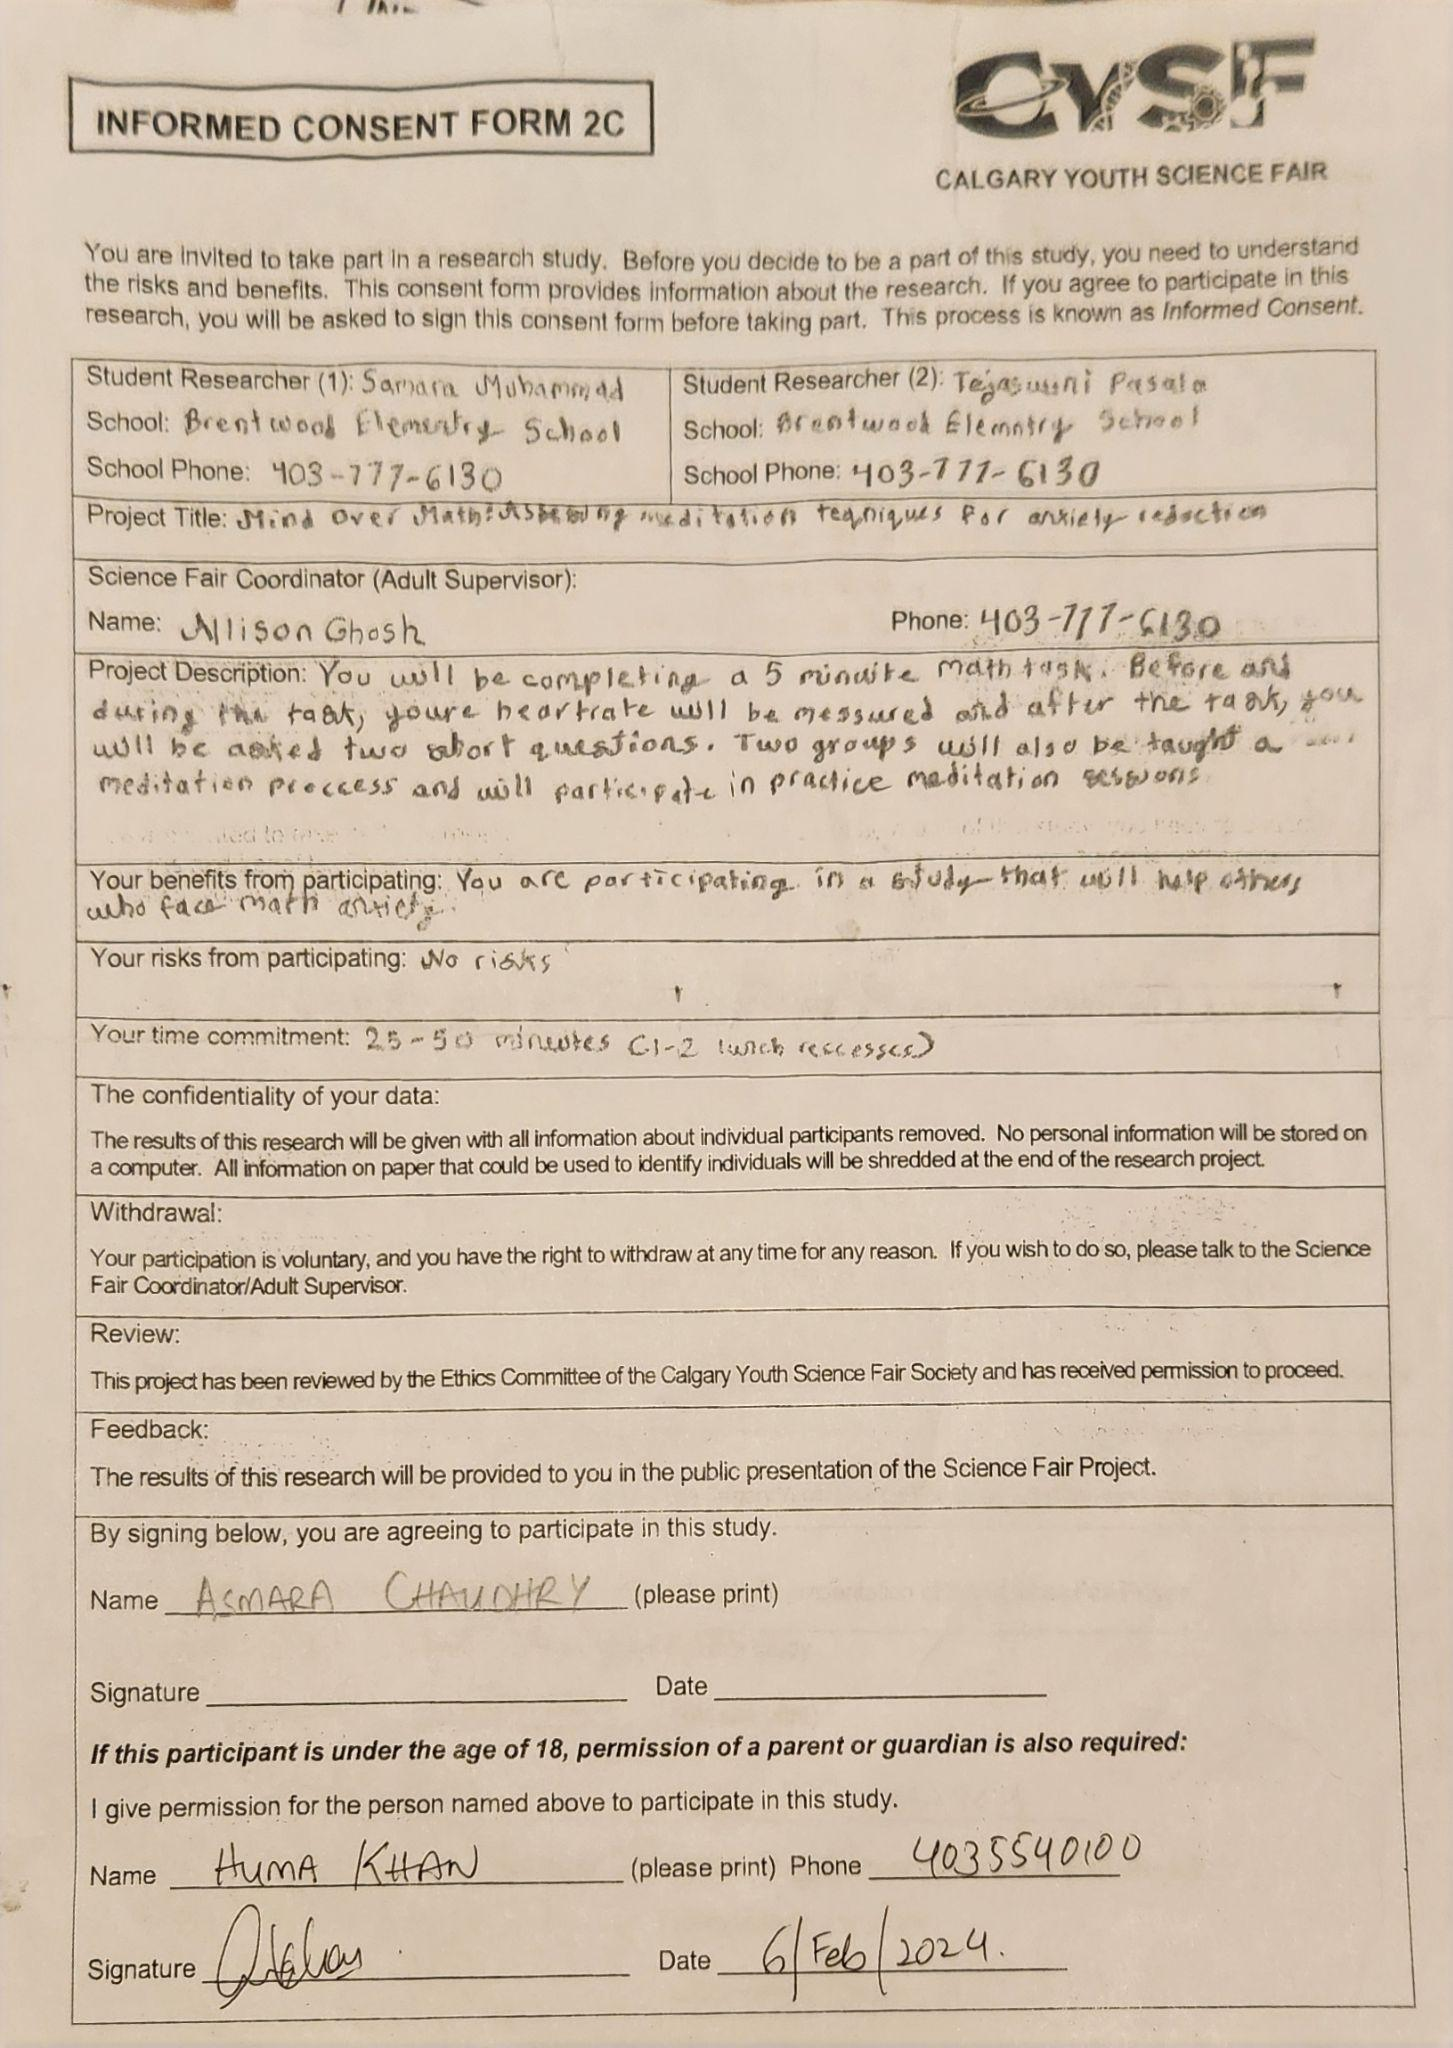 INFORMED CONSENT FORM 2C
CYSF
CALGARY YOUTH SCIENCE FAIR
You are invited to take part in a research study. Before you decide to be a part of this study, you need to understand
the risks and benefits. This consent form provides information about the research. If you agree to participate in this
research, you will be asked to sign this consent form before taking part. This process is known as Informed Consent.
Student Researcher (1): Samara Muhammad
School: Brentwood Elementry School
School Phone: 403-777-6130
Student Researcher (2): Pasala
School: Brentwood Elemntry School
School Phone: 403-777-6130
Project Title: Mind Over Math: meditation teqniques for anxiety reduction
Science Fair Coordinator (Adult Supervisor):
Name: Allison Ghosh Phone: 403-777-6130
Project Description: You will be completing a 5 minuite math task. Before and
during the task, youre heartrate will be messured and after the task, you
will be asked two short questions. Two groups will also be taught a
meditation proccess and will participate in practice meditation sessions
Your benefits from participating: You are participating in a study that will help others
who face math anxiety.
Your risks from participating: No risks
Your time commitment: 25-50 minuites (1-2 lunch rescesses)
The confidentiality of your data:
The results of this research will be given with all information about individual participants removed. No personal information will be stored on
a computer. All information on paper that could be used to identify individuals will be shredded at the end of the research project.
Withdrawal:
Your participation is voluntary, and you have the right to withdraw at any time for any reason. If you wish to do so, please talk to the Science
Fair Coordinator/Adult Supervisor.
Review:
This project has been reviewed by the Ethics Committee of the Calgary Youth Science Fair Society and has received permission to proceed.
Feedback:
The results of this research will be provided to you in the public presentation of the Science Fair Project.
By signing below, you are agreeing to participate in this study.
Name ASMARA CHAUDHRY (please print)
Signature Date
If this participant is under the age of 18, permission of a parent or guardian is also required:
I give permission for the person named above to participate in this study.
Name HUMA KHAN (please print) Phone 4035540100
Signature Date 6/Feb/2024.